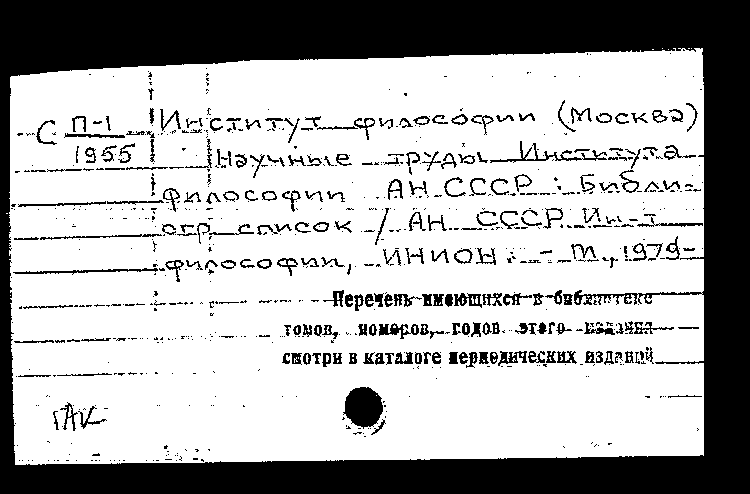 С П-1 Институт философии (Москва)
1955 Научные труды Института
философии АН СССР : Библи-
огр. список / АН СССР. Ин-т
философии, ИНИОН. - М., 1979-
Перечень имеющихся в библиотеке
томов, номеров, годов этого издания
смотри в каталоге периодических изданий
ГАК